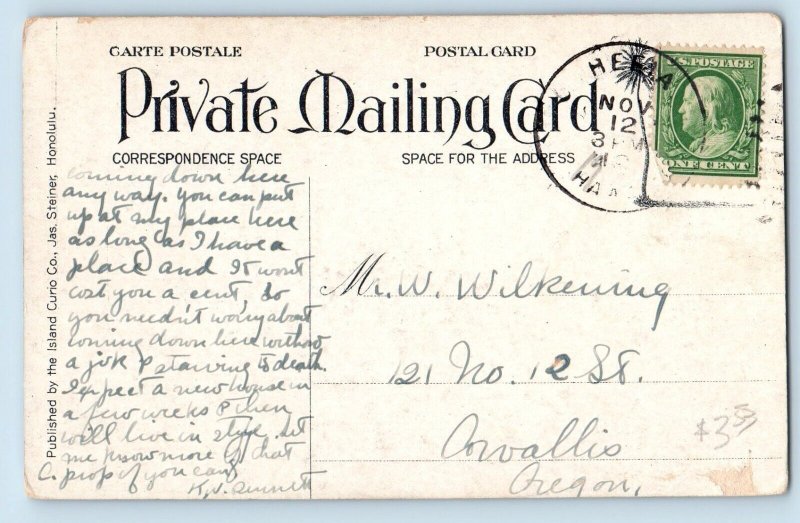 CARTE POSTALE
POSTAL CARD
Private Mailing Card
CORRESPONDENCE SPACE
SPACE FOR THE ADDRESS
Published by the Island Curio Co., Jas. Steiner, Honolulu.
U.S. POSTAGE
ONE CENT
NOV
12
3 PM
coming down here
any way. you can put
up at my place here
as long as I have a
place and It wont
cost you a cent, so
you needn't worry about
coming down here without
a job & starving to death.
I expect a new house in
a few weeks & then
will live in style. Let
me know more of that
C. prop if you can
Mr. W. Wilkening
121 No. 12 St.
Corvallis
Oregon,